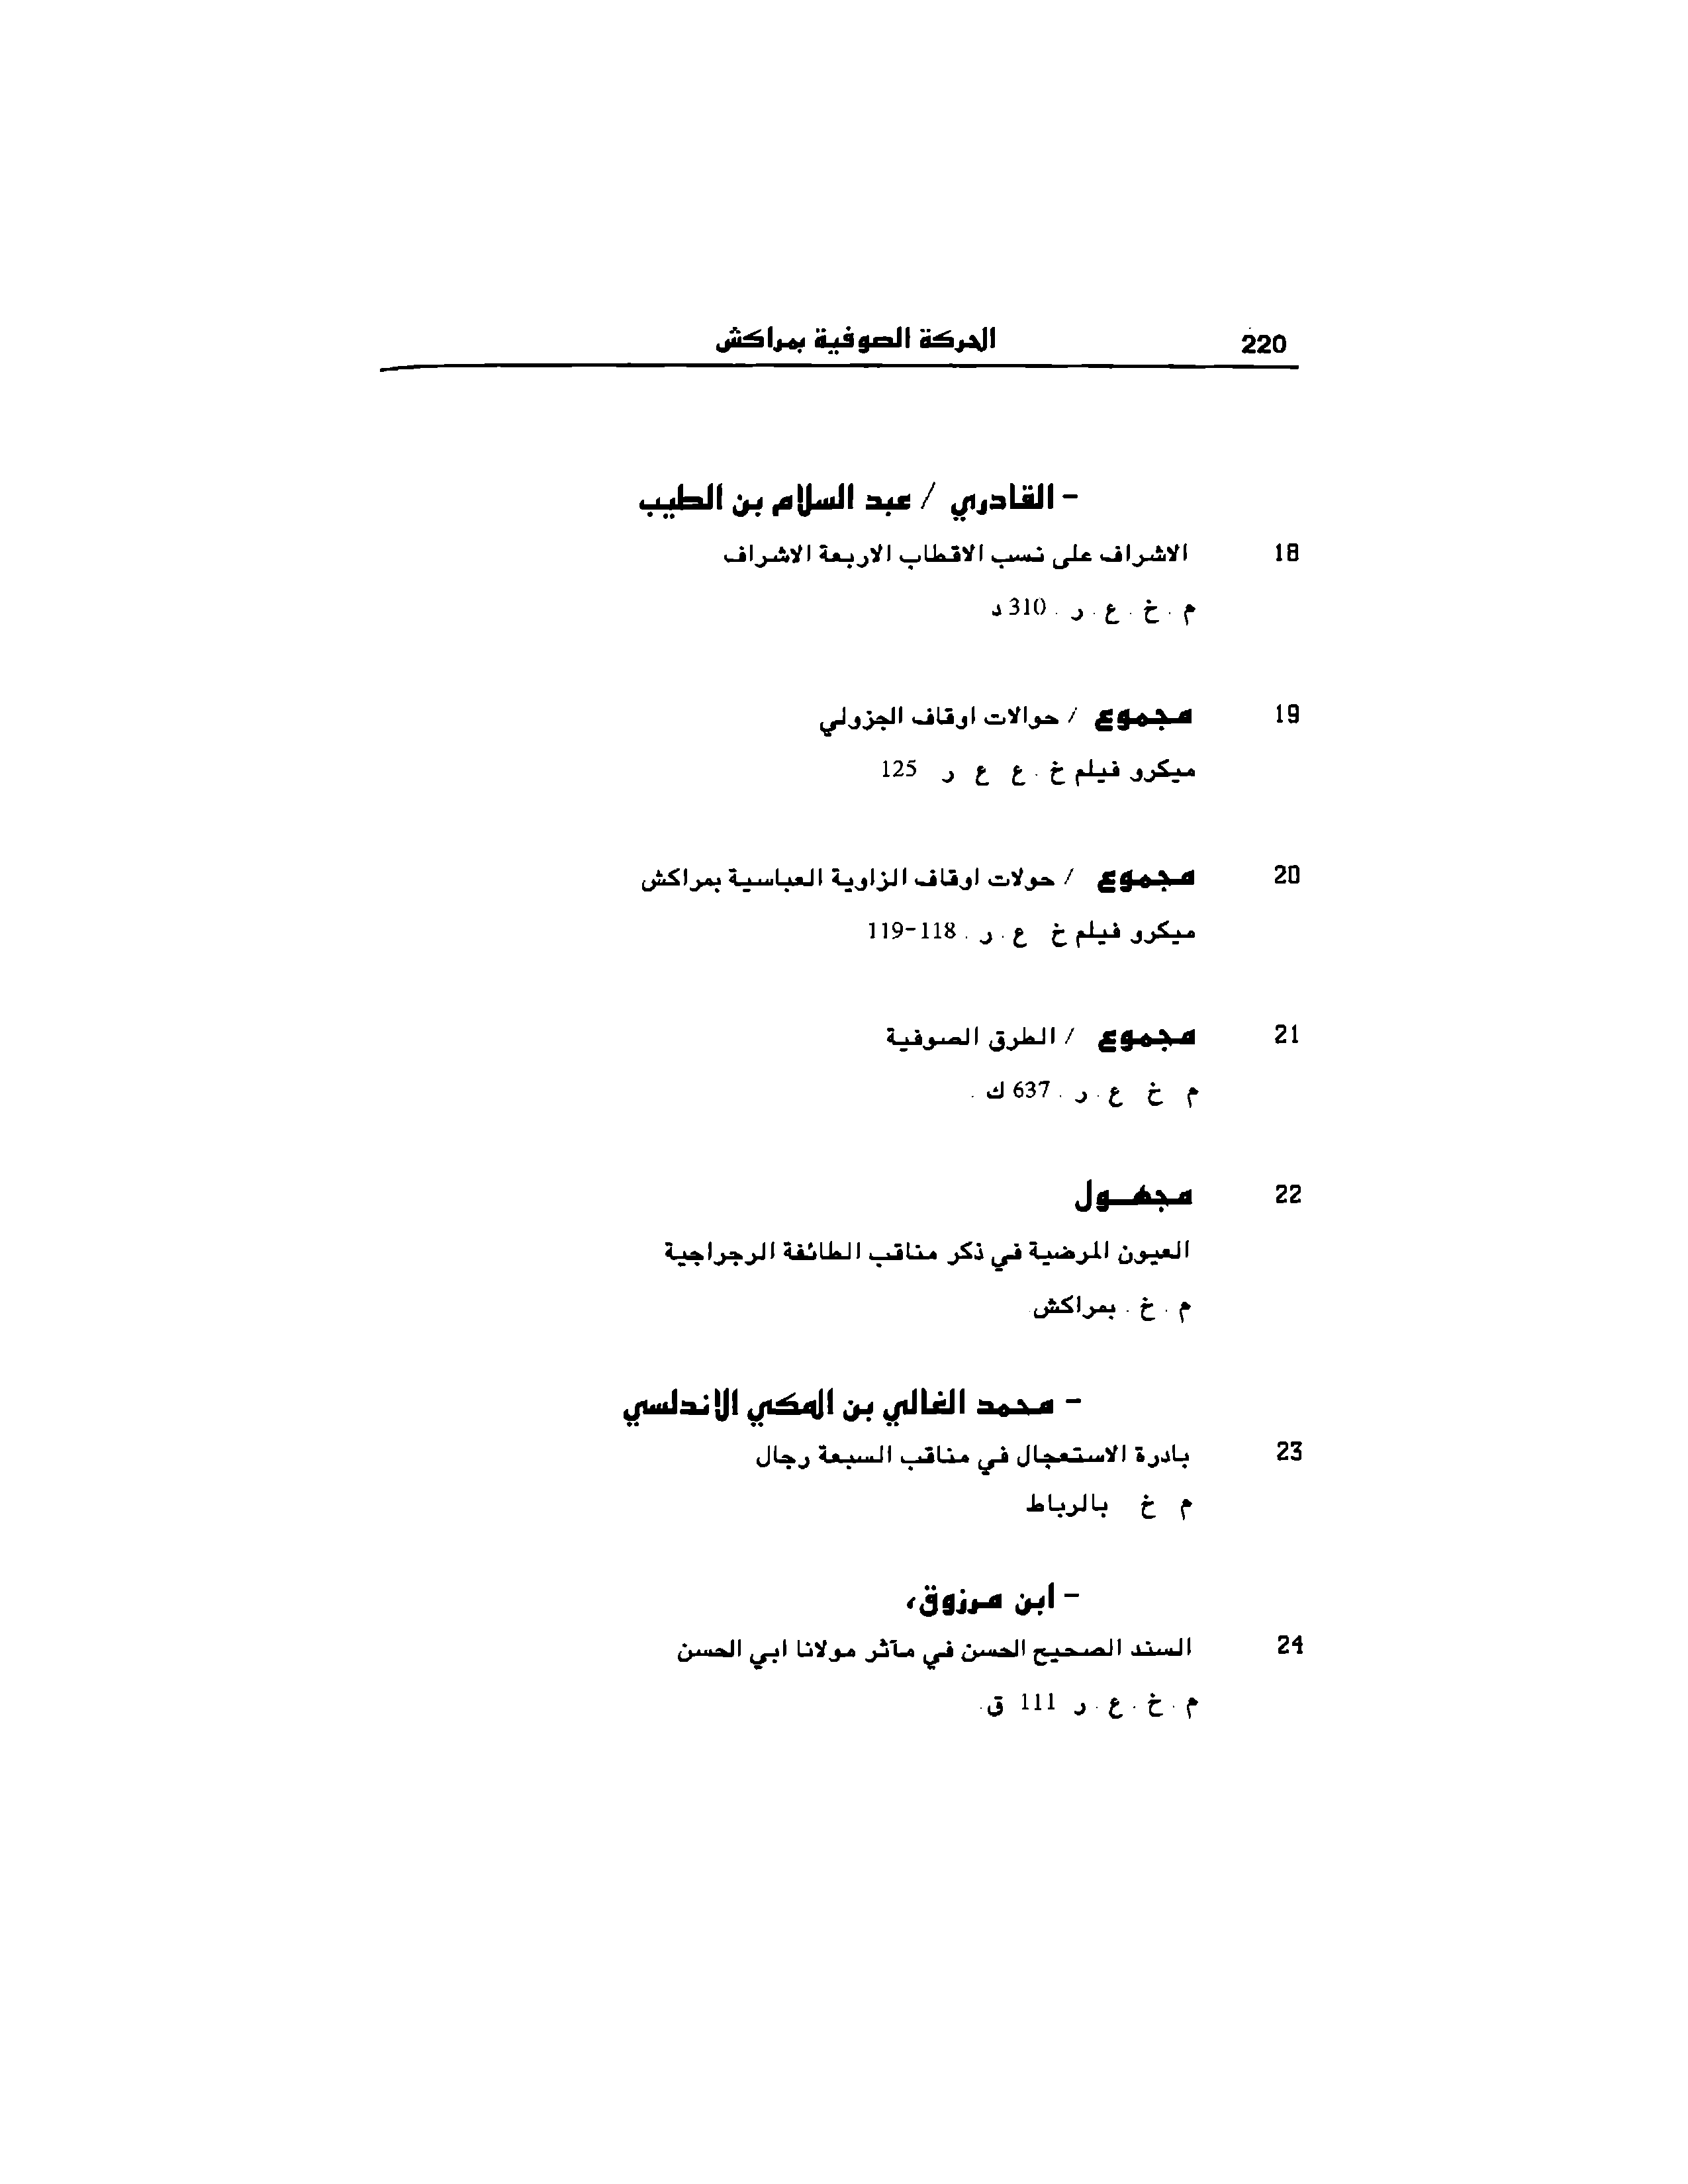 220 الحركة الصوفية بمراكش
- القادري / عبد السلام بن الطيب
18 الاشراف على نسب الاقطاب الاربعة الاشراف
م . خ . ع . ر . 310 د
19 مجموع / حوالات اوقاف الجزولي
ميكرو فيلم خ . ع ع ر 125
20 مجموع / حولات اوقاف الزاوية العباسية بمراكش
ميكرو فيلم خ ع . ر . 118-119
21 مجموع / الطرق الصوفية
م خ ع . ر . 637 ك .
22 مجهــول
العيون المرضية في ذكر مناقب الطائفة الرجراجية
م . خ . بمراكش.
- محمد الغالي بن المكي الاندلسي
23 بادرة الاستعجال في مناقب السبعة رجال
م خ بالرباط
- ابن مرزوق،
24 السند الصحيح الحسن في مآثر مولانا ابي الحسن
م . خ . ع . ر 111 ق.